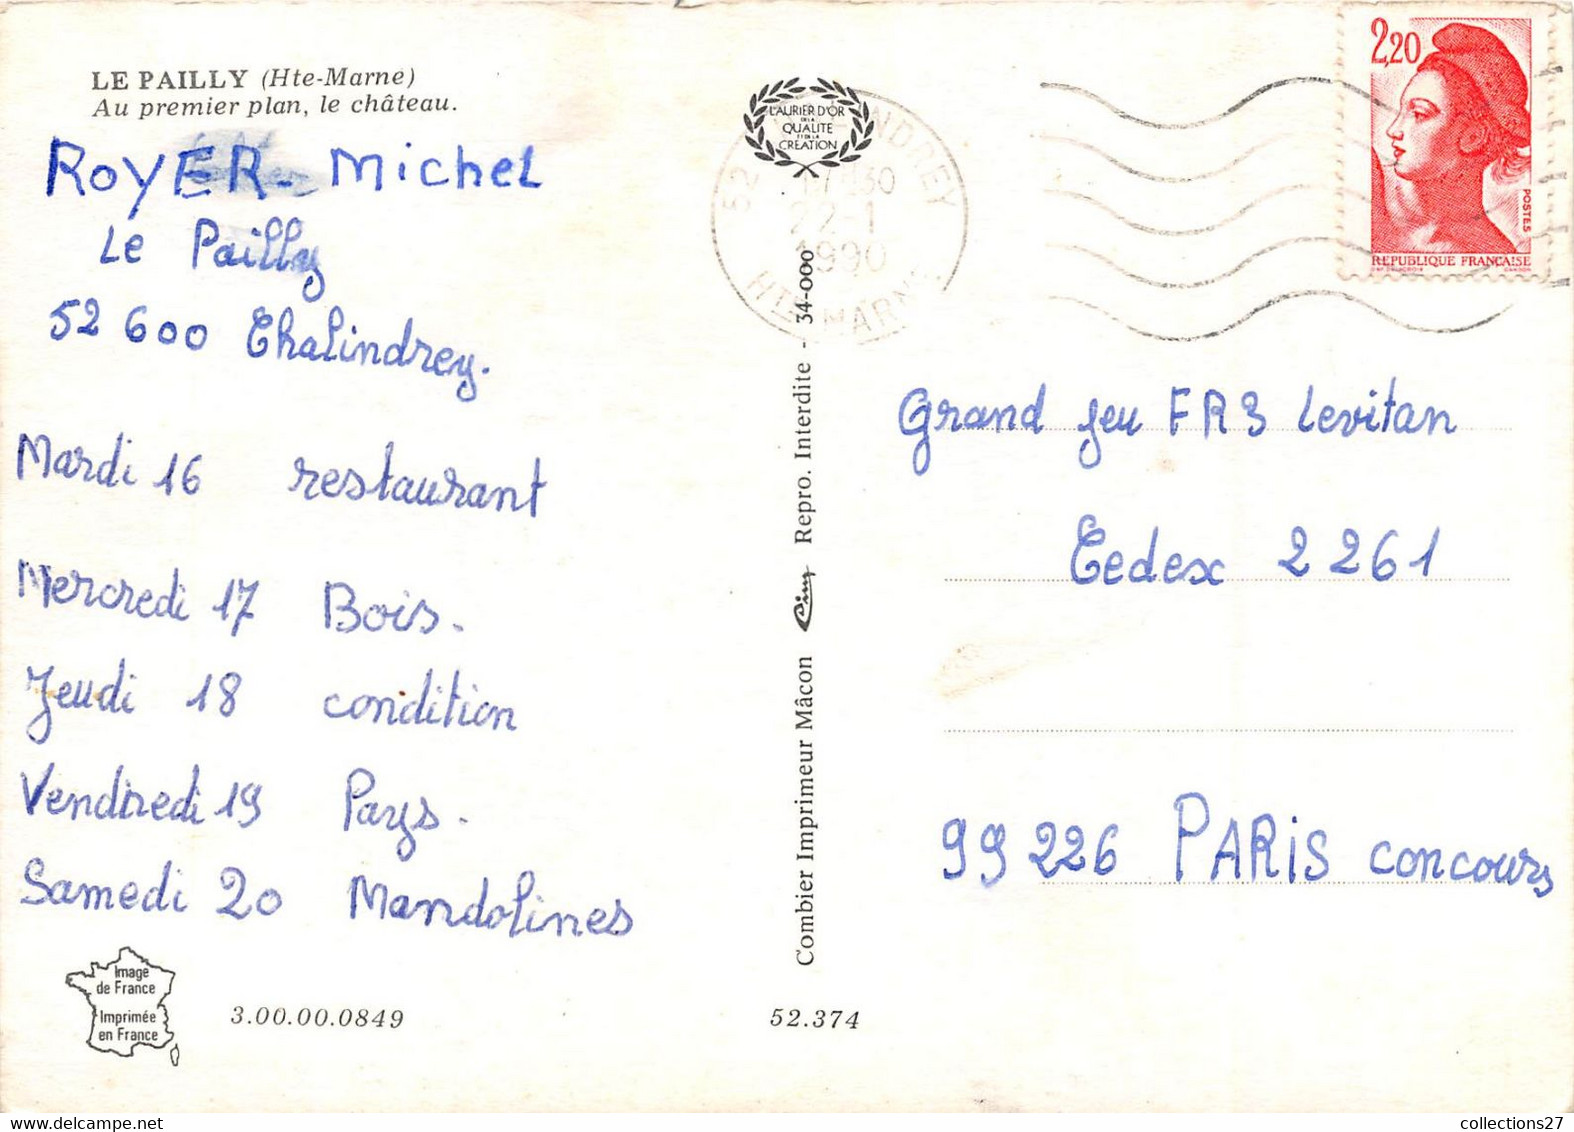 LE PAILLY (Hte-Marne)
Au premier plan, le château.
ROYER- Michel
Le Pailly
52 600 Chalindrey.
Mardi 16 restaurant
Mercredi 17 Bois.
Jeudi 18 condition
Vendredi 19 Pays.
Samedi 20 Mandolines
Image
de France
Imprimée
en France
3.00.00.0849
52.374
Combier Imprimeur Mâcon Cim Repro. Interdite - 34-000
LAURIER D'OR
DE LA
QUALITE
ET DE LA
CREATION
17H30
22-1
1990
HTE MARNE
2,20
POSTES
REPUBLIQUE FRANÇAISE
Grand jeu FR3 Levitan
Cedex 2261
99 226 PARIS concours
collections27